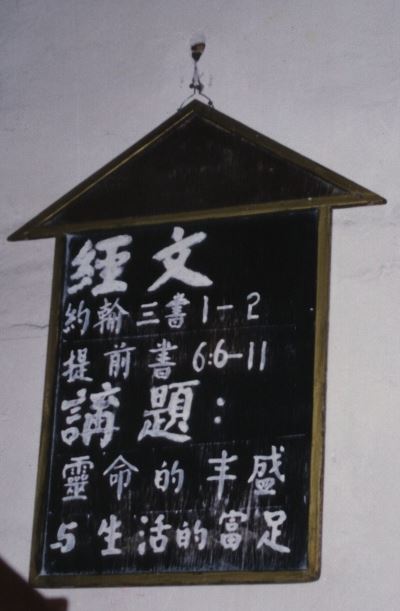 經文
約翰三書1-2
提前書6:6-11
講題:
靈命的丰盛
与生活的富足